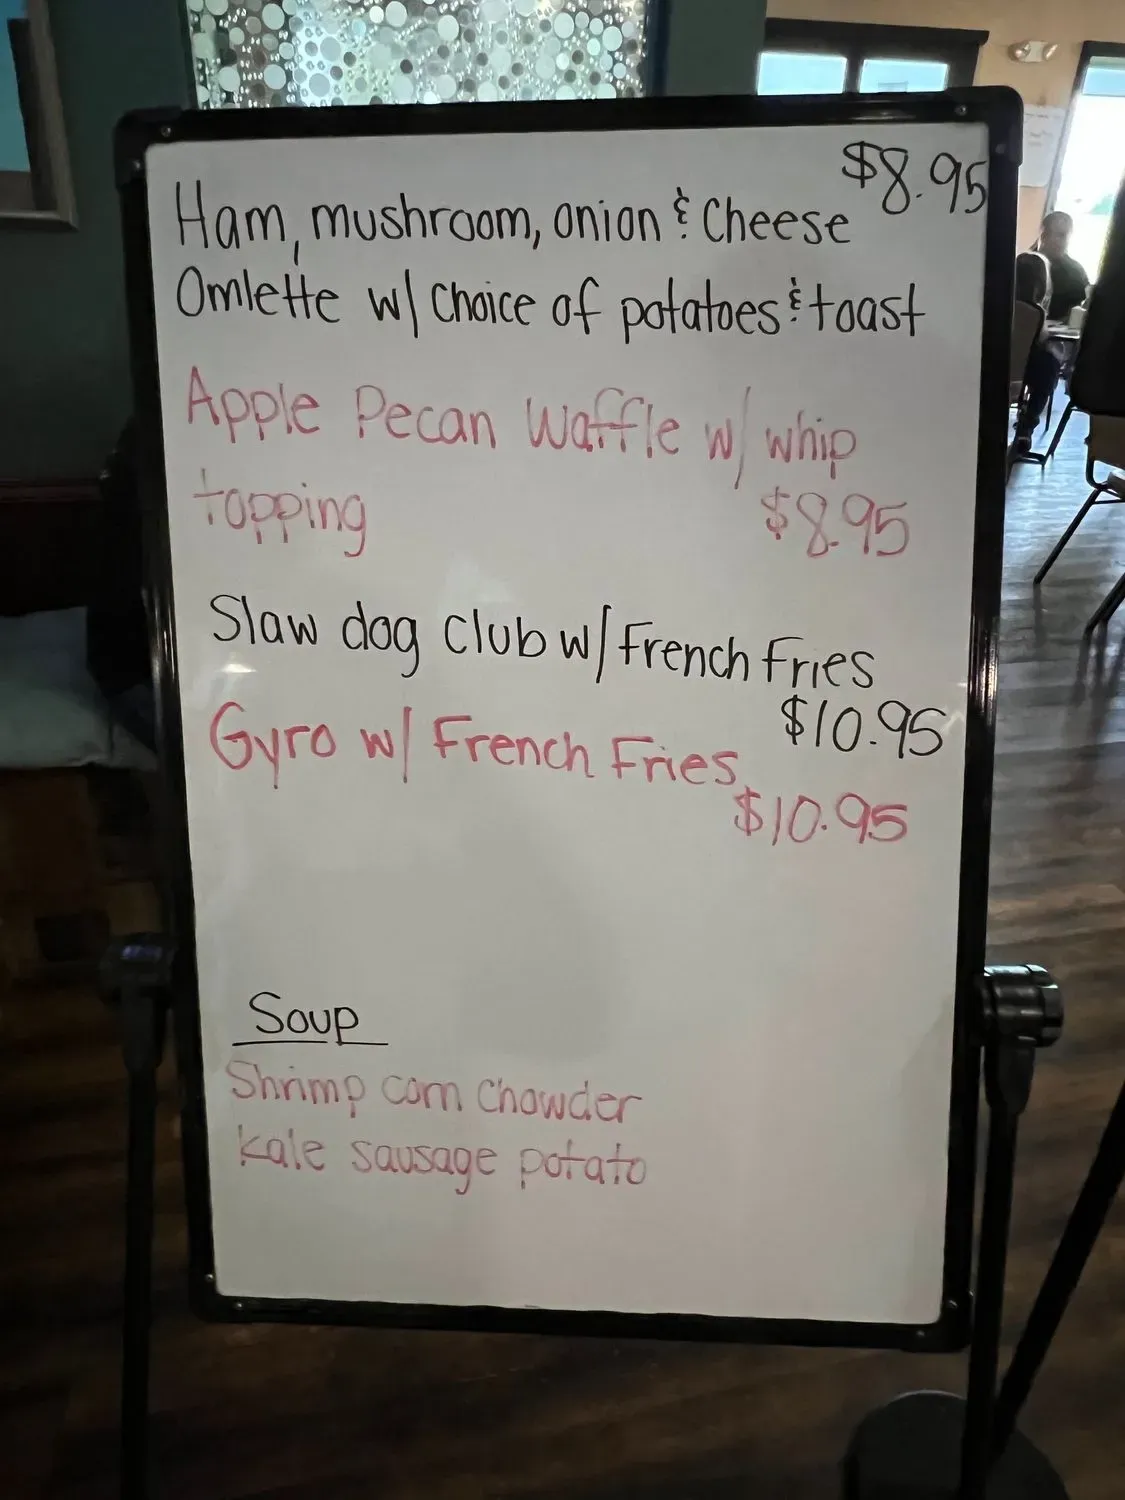 $8.95
Ham, mushroom, onion & Cheese
Omlette w/ Choice of potatoes & toast
Apple Pecan Waffle w/ whip
topping $8.95
Slaw dog Club w/ French Fries
$10.95
Gyro w/ French Fries
$10.95
Soup
Shrimp corn Chowder
kale sausage potato